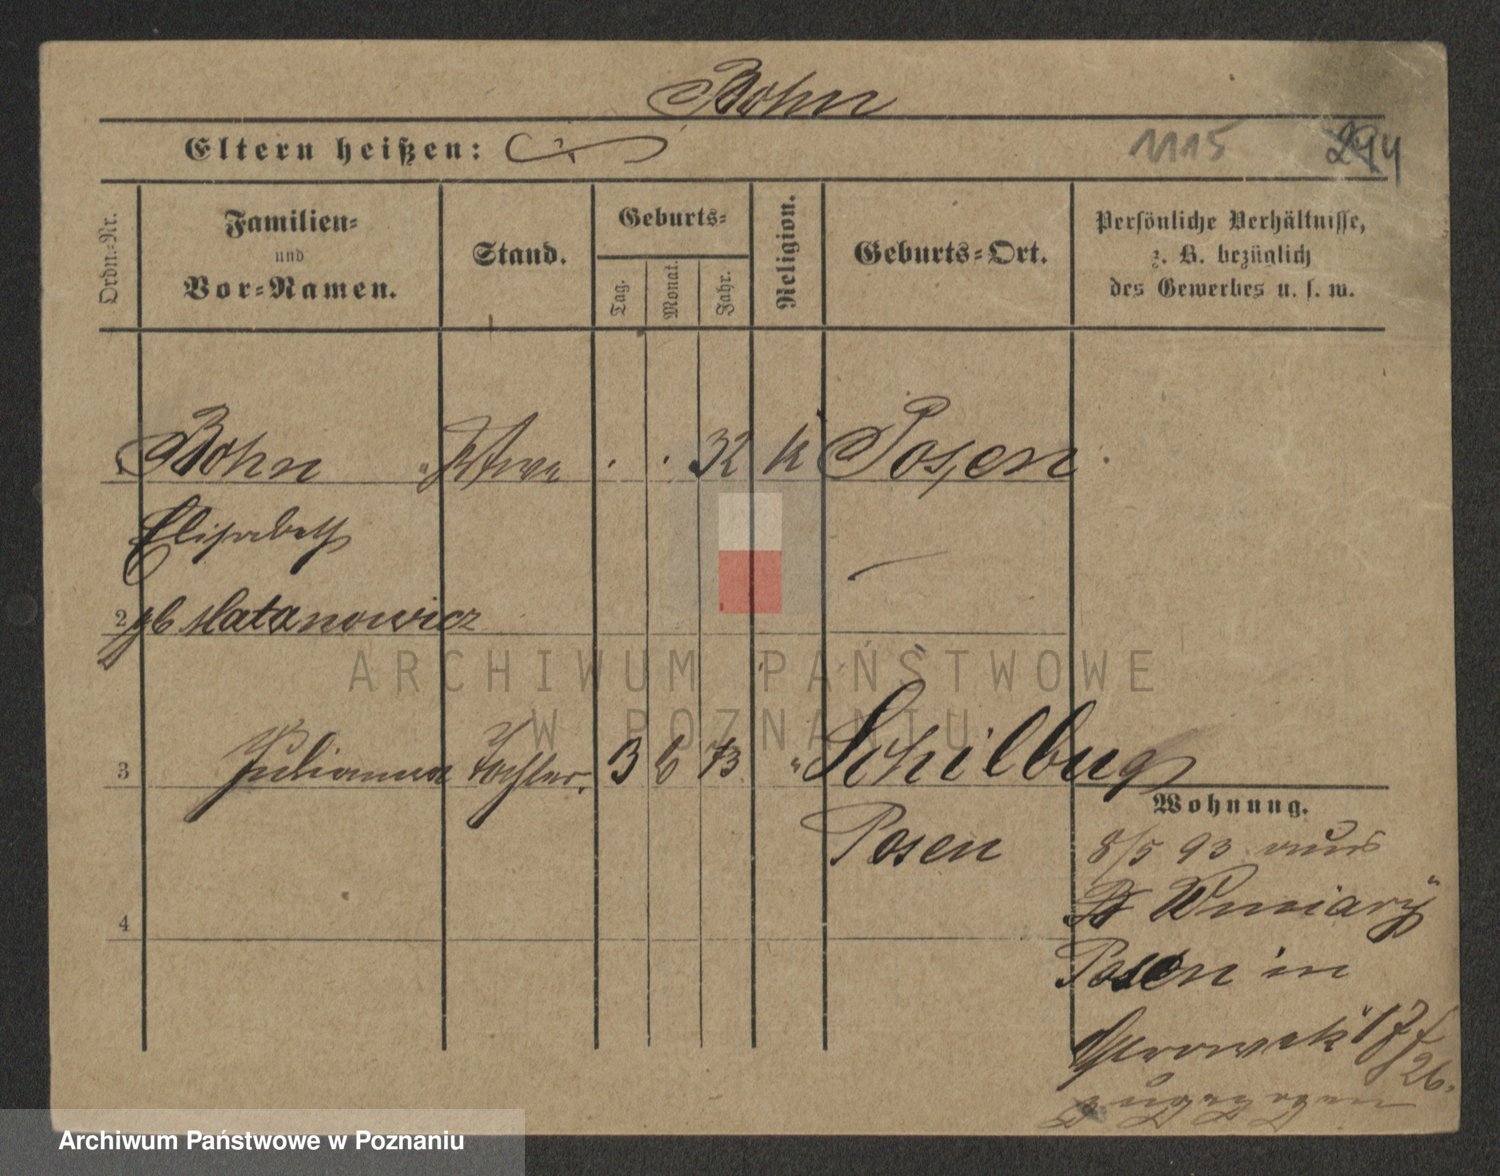 Bohn
Eltern heißen:
1115
244
Ordn.-Nr.
Familien-
und
Vor-Namen.
Stand.
Geburts-
Tag.
Monat.
Jahr.
Religion.
Geburts-Ort.
Persönliche Verhältnisse,
z. B. bezüglich
des Gewerbes u. s. w.
1 Bohn Wtwe . . 32 k Posen
Elisabeth
2 gb Matanowicz
ARCHIWUM PAŃSTWOWE
W POZNANIU
3 Julianna Tochter. 3 6 73 " Schilbug
Wohnung.
Posen
8/5 93 aus
Winiary
4
Posen in
17
26.
zugezogen
Archiwum Państwowe w Poznaniu